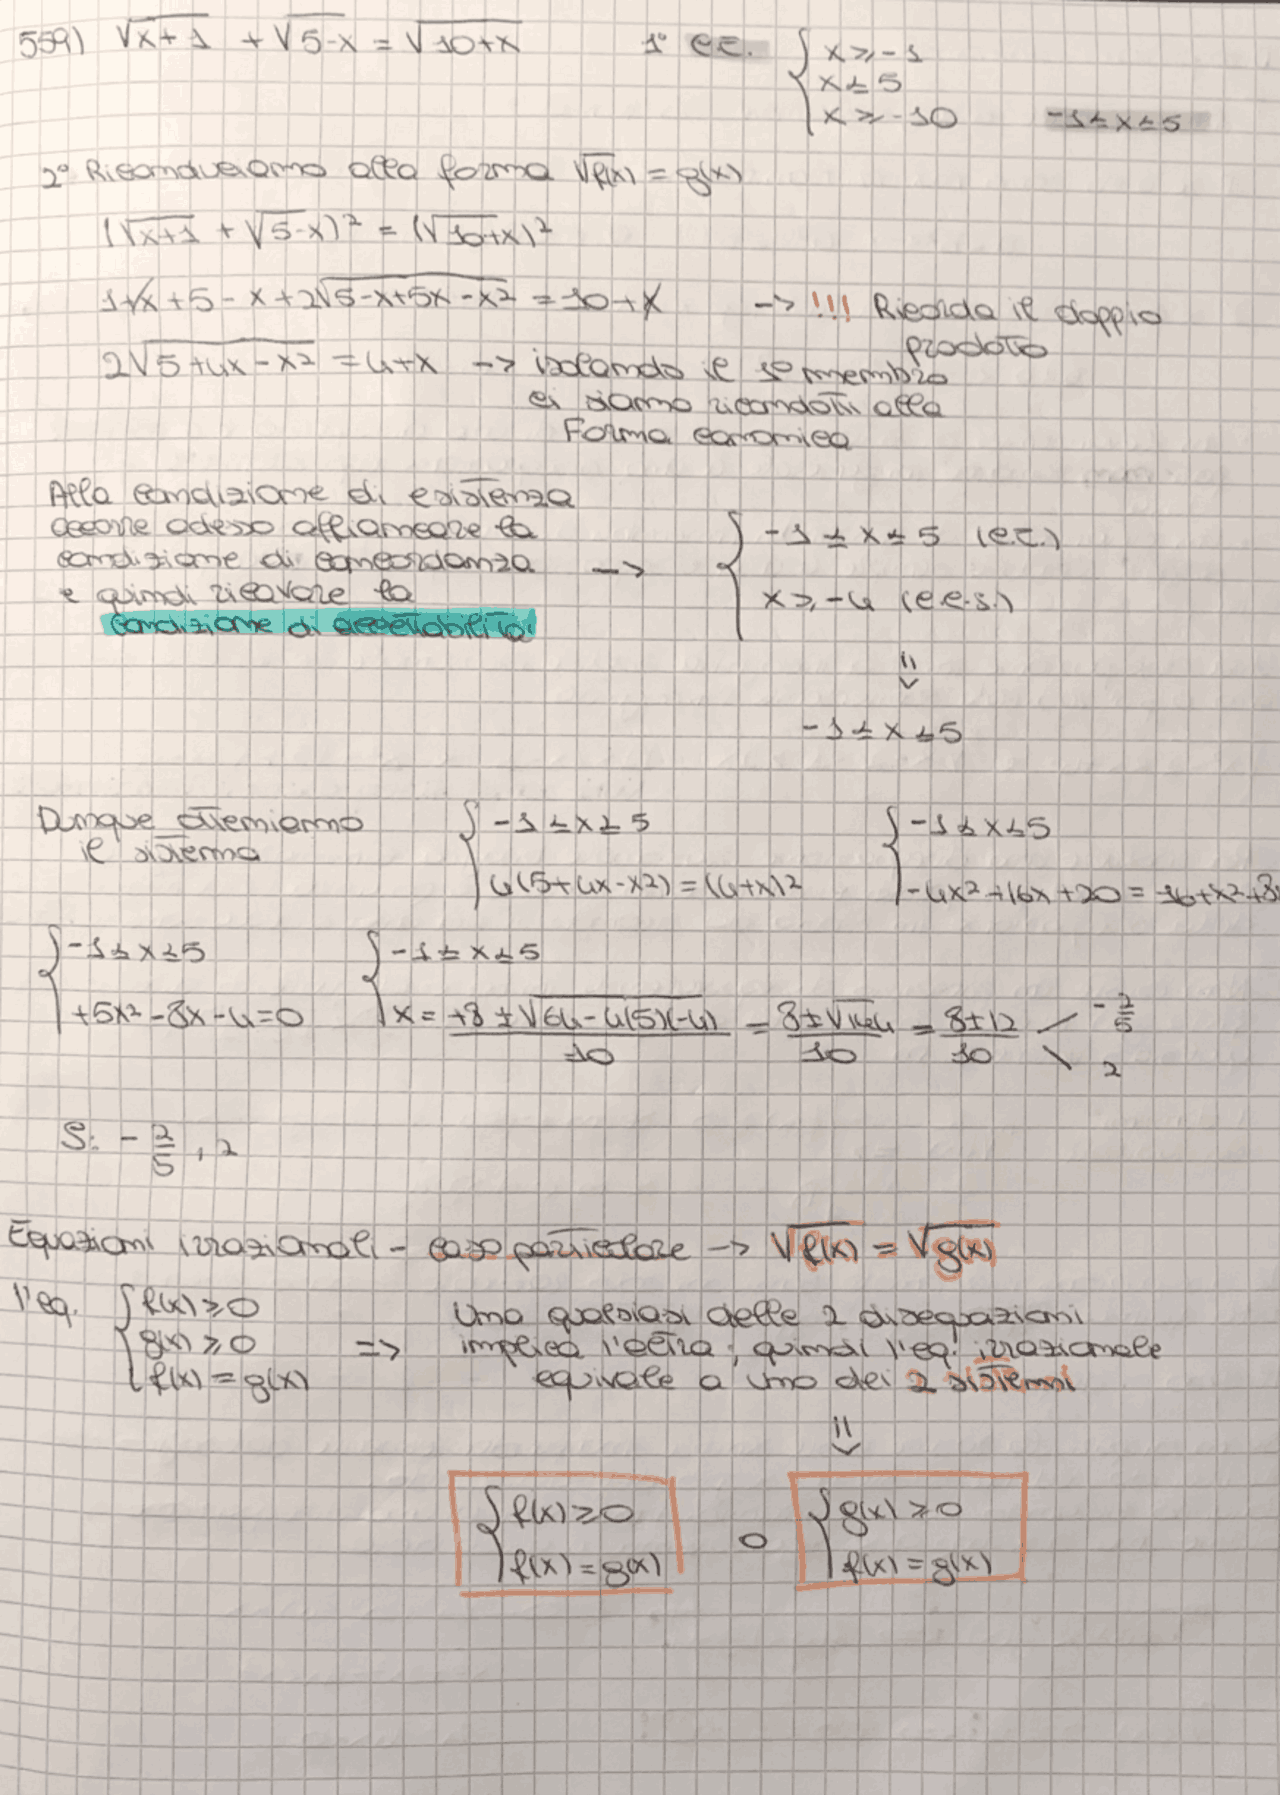 559) √x+1 + √5-x = √10+x 1° C.E. { x ≥ -1
x ≤ 5
x ≥ -10 -1 ≤ x ≤ 5
2° Riconduciamo alla forma √f(x) = g(x)
(√x+1 + √5-x)² = (√10+x)²
1+x+5-x+2√5-x+5x-x² = 10+x -> !!! Ricorda il doppio
prodotto
2√5+4x-x² = 4+x -> isolando il 1° membro
ci siamo ricondotti alla
Forma canonica
Alla condizione di esistenza
occorre adesso affiancare la
condizione di concordanza
e quindi ricavare la
condizione di accettabilità
-> { -1 ≤ x ≤ 5 (C.E.)
x ≥ -4 (c.c.s.)
=>
-1 ≤ x ≤ 5
Dunque otteniamo
il sistema
{ -1 ≤ x ≤ 5
4(5+4x-x²) = (4+x)²
{ -1 ≤ x ≤ 5
-4x²+16x+20 = 16+x²+8
{ -1 ≤ x ≤ 5
+5x²-8x-4=0
{ -1 ≤ x ≤ 5
x = +8±√64-4(5)(-4) / 10 = 8±√144 / 10 = 8±12 / 10 -2/5
2
S: -2/5, 2
Equazioni irrazionali - caso particolare -> √f(x) = √g(x)
l'eq. { f(x) ≥ 0
g(x) ≥ 0
f(x) = g(x)
=> Una qualsiasi delle 2 disequazioni
implica l'altra, quindi l'eq. irrazionale
equivale a uno dei 2 sistemi
=>
{ f(x) ≥ 0
f(x) = g(x)
o
{ g(x) ≥ 0
f(x) = g(x)